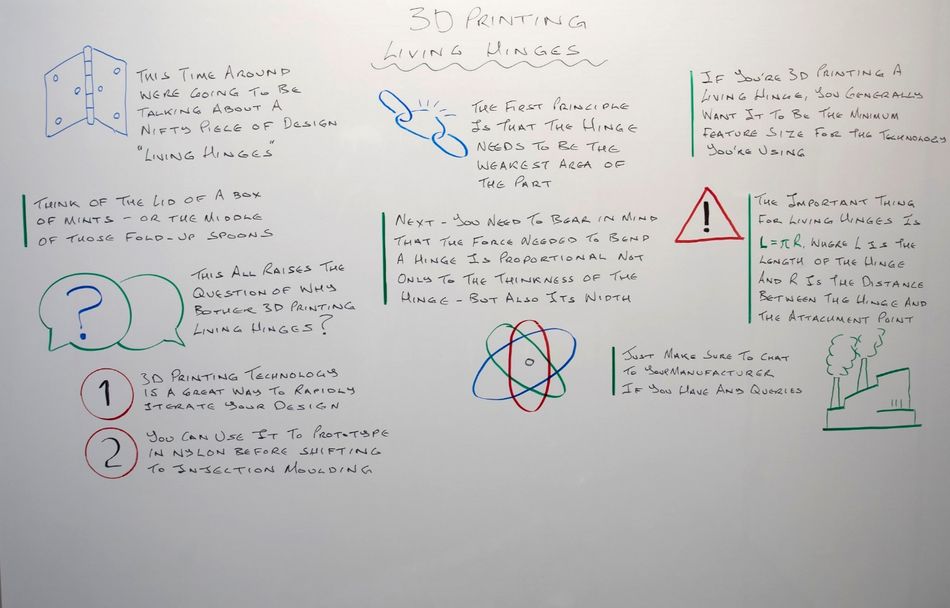 3D PRINTING
LIVING HINGES
THIS TIME AROUND
WERE GOING TO BE
TALKING ABOUT A
NIFTY PIECE OF DESIGN
"LIVING HINGES"
THINK OF THE LID OF A BOX
OF MINTS - OR THE MIDDLE
OF THOSE FOLD-UP SPOONS
?
THIS ALL RAISES THE
QUESTION OF WHY
BOTHER 3D PRINTING
LIVING HINGES?
1
3D PRINTING TECHNOLOGY
IS A GREAT WAY TO RAPIDLY
ITERATE YOUR DESIGN
2
YOU CAN USE IT TO PROTOTYPE
IN NYLON BEFORE SHIFTING
TO INJECTION MOULDING
THE FIRST PRINCIPLE
IS THAT THE HINGE
NEEDS TO BE THE
WEAKEST AREA OF
THE PART
NEXT - YOU NEED TO BEAR IN MIND
THAT THE FORCE NEEDED TO BEND
A HINGE IS PROPORTIONAL NOT
ONLY TO THE THINKNESS OF THE
HINGE - BUT ALSO ITS WIDTH
IF YOU'RE 3D PRINTING A
LIVING HINGE, YOU GENERALLY
WANT IT TO BE THE MINIMUM
FEATURE SIZE FOR THE TECHNOLOGY
YOU'RE USING
!
THE IMPORTANT THING
FOR LIVING HINGES IS
L=πR, WHERE L IS THE
LENGTH OF THE HINGE
AND R IS THE DISTANCE
BETWEEN THE HINGE AND
THE ATTACHMENT POINT
JUST MAKE SURE TO CHAT
TO YOUR MANUFACTURER
IF YOU HAVE ANY QUERIES